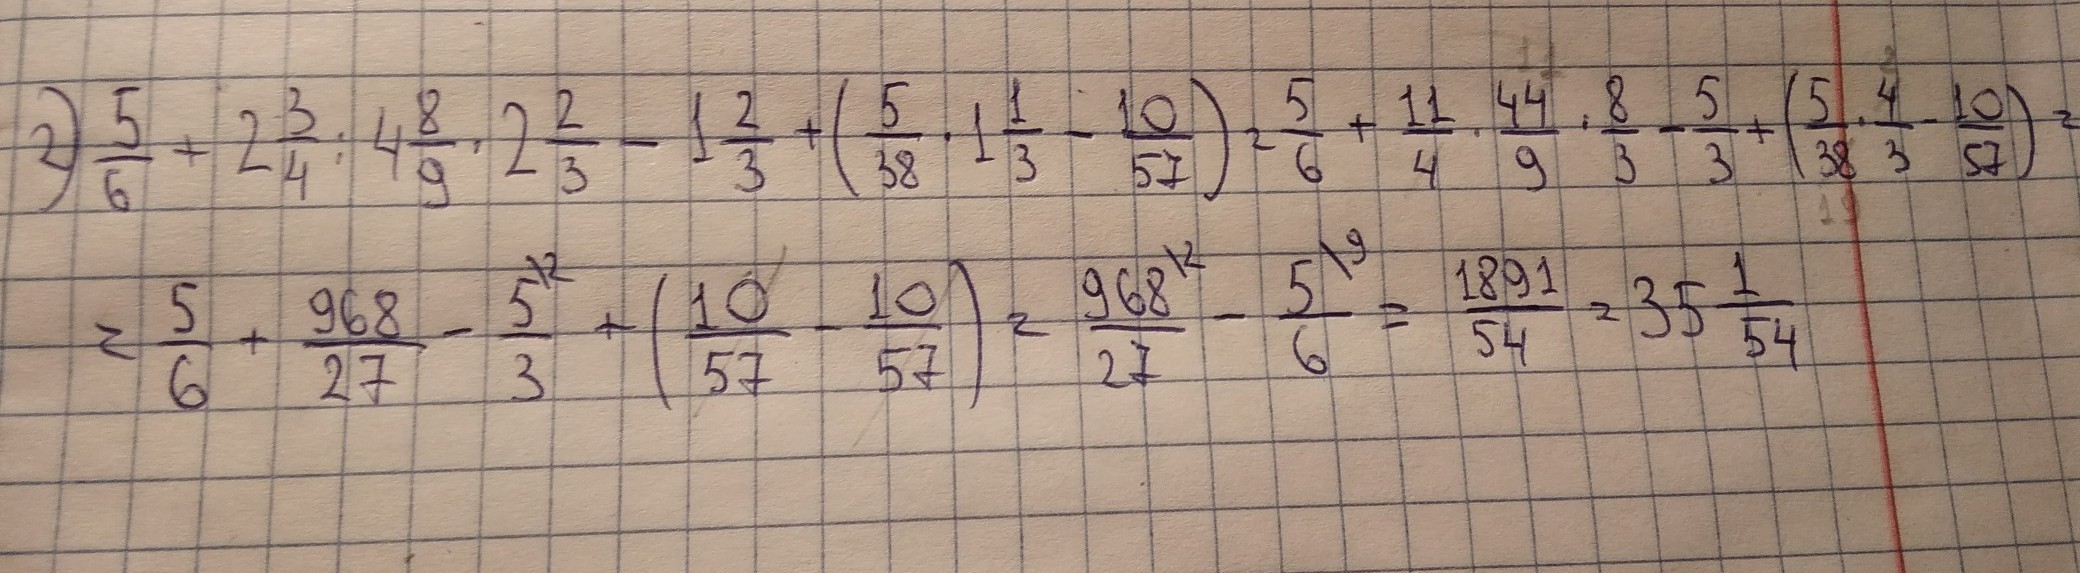 2) 5/6 + 2 3/4 : 4 8/9 · 2 2/3 - 1 2/3 + (5/38 · 1 1/3 - 10/57) = 5/6 + 11/4 · 44/9 · 8/3 - 5/3 + (5/38 · 4/3 - 10/57) =
= 5/6 + 968/27 - 5\2/3 + (10/57 - 10/57) = 968\2/27 - 5\9/6 = 1891/54 = 35 1/54